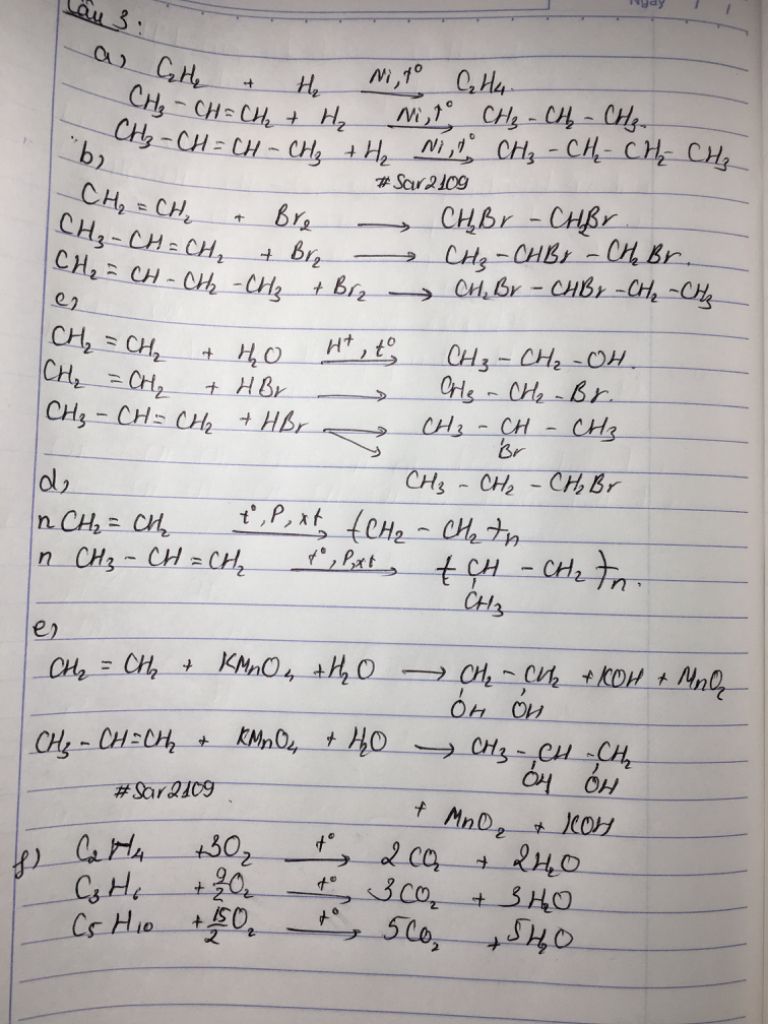 Câu 3:
a) C2H2 + H2 Ni,t° → C2H4.
CH3 - CH = CH2 + H2 Ni,t° → CH3 - CH2 - CH3.
CH3 - CH = CH - CH3 + H2 Ni,t° → CH3 - CH2 - CH2 - CH3
b)
#Sar2109
CH2 = CH2 + Br2 → CH2Br - CH2Br
CH3 - CH = CH2 + Br2 → CH3 - CHBr - CH2Br.
CH2 = CH - CH2 - CH3 + Br2 → CH2Br - CHBr - CH2 - CH3
c)
CH2 = CH2 + H2O H+, t° → CH3 - CH2 - OH.
CH2 = CH2 + HBr → CH3 - CH2 - Br.
CH3 - CH = CH2 + HBr → CH3 - CH - CH3
Br
CH3 - CH2 - CH2Br
d)
nCH2 = CH2 t°, P, xt → (CH2 - CH2)n
n CH3 - CH = CH2 t°, P, xt → (CH - CH2)n.
CH3
e)
CH2 = CH2 + KMnO4 + H2O → CH2 - CH2 + KOH + MnO2
OH OH
CH3 - CH = CH2 + KMnO4 + H2O → CH3 - CH - CH2
OH OH
#Sar2109
+ MnO2 + KOH
f) C2H4 + 3O2 t° → 2CO2 + 2H2O
C3H6 + 9/2 O2 t° → 3CO2 + 3H2O
C5H10 + 15/2 O2 t° → 5CO2 + 5H2O
Ngày